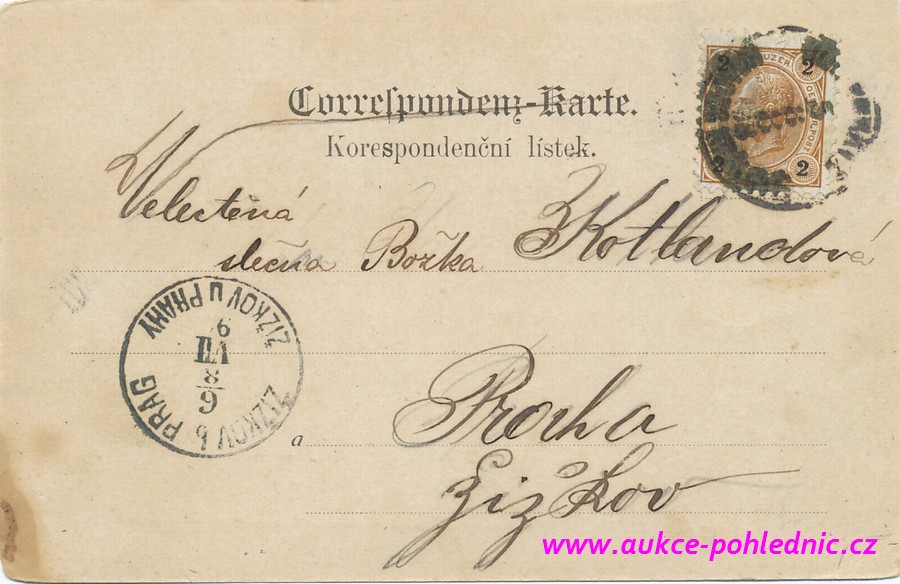 Correspondenz-Karte.
Korespondenční lístek.
2 KREUZER 2
2 2
Velectěná
slečna Božka Kotlandová
ŽIŽKOV U PRAHY
VII
ŽIŽKOV b PRAG
a Praha
Žižkov
www.aukce-pohlednic.cz